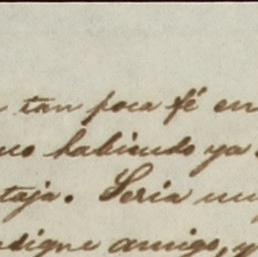 tan poca fé en
no habiendo ya
taja. Seria
amigo, y